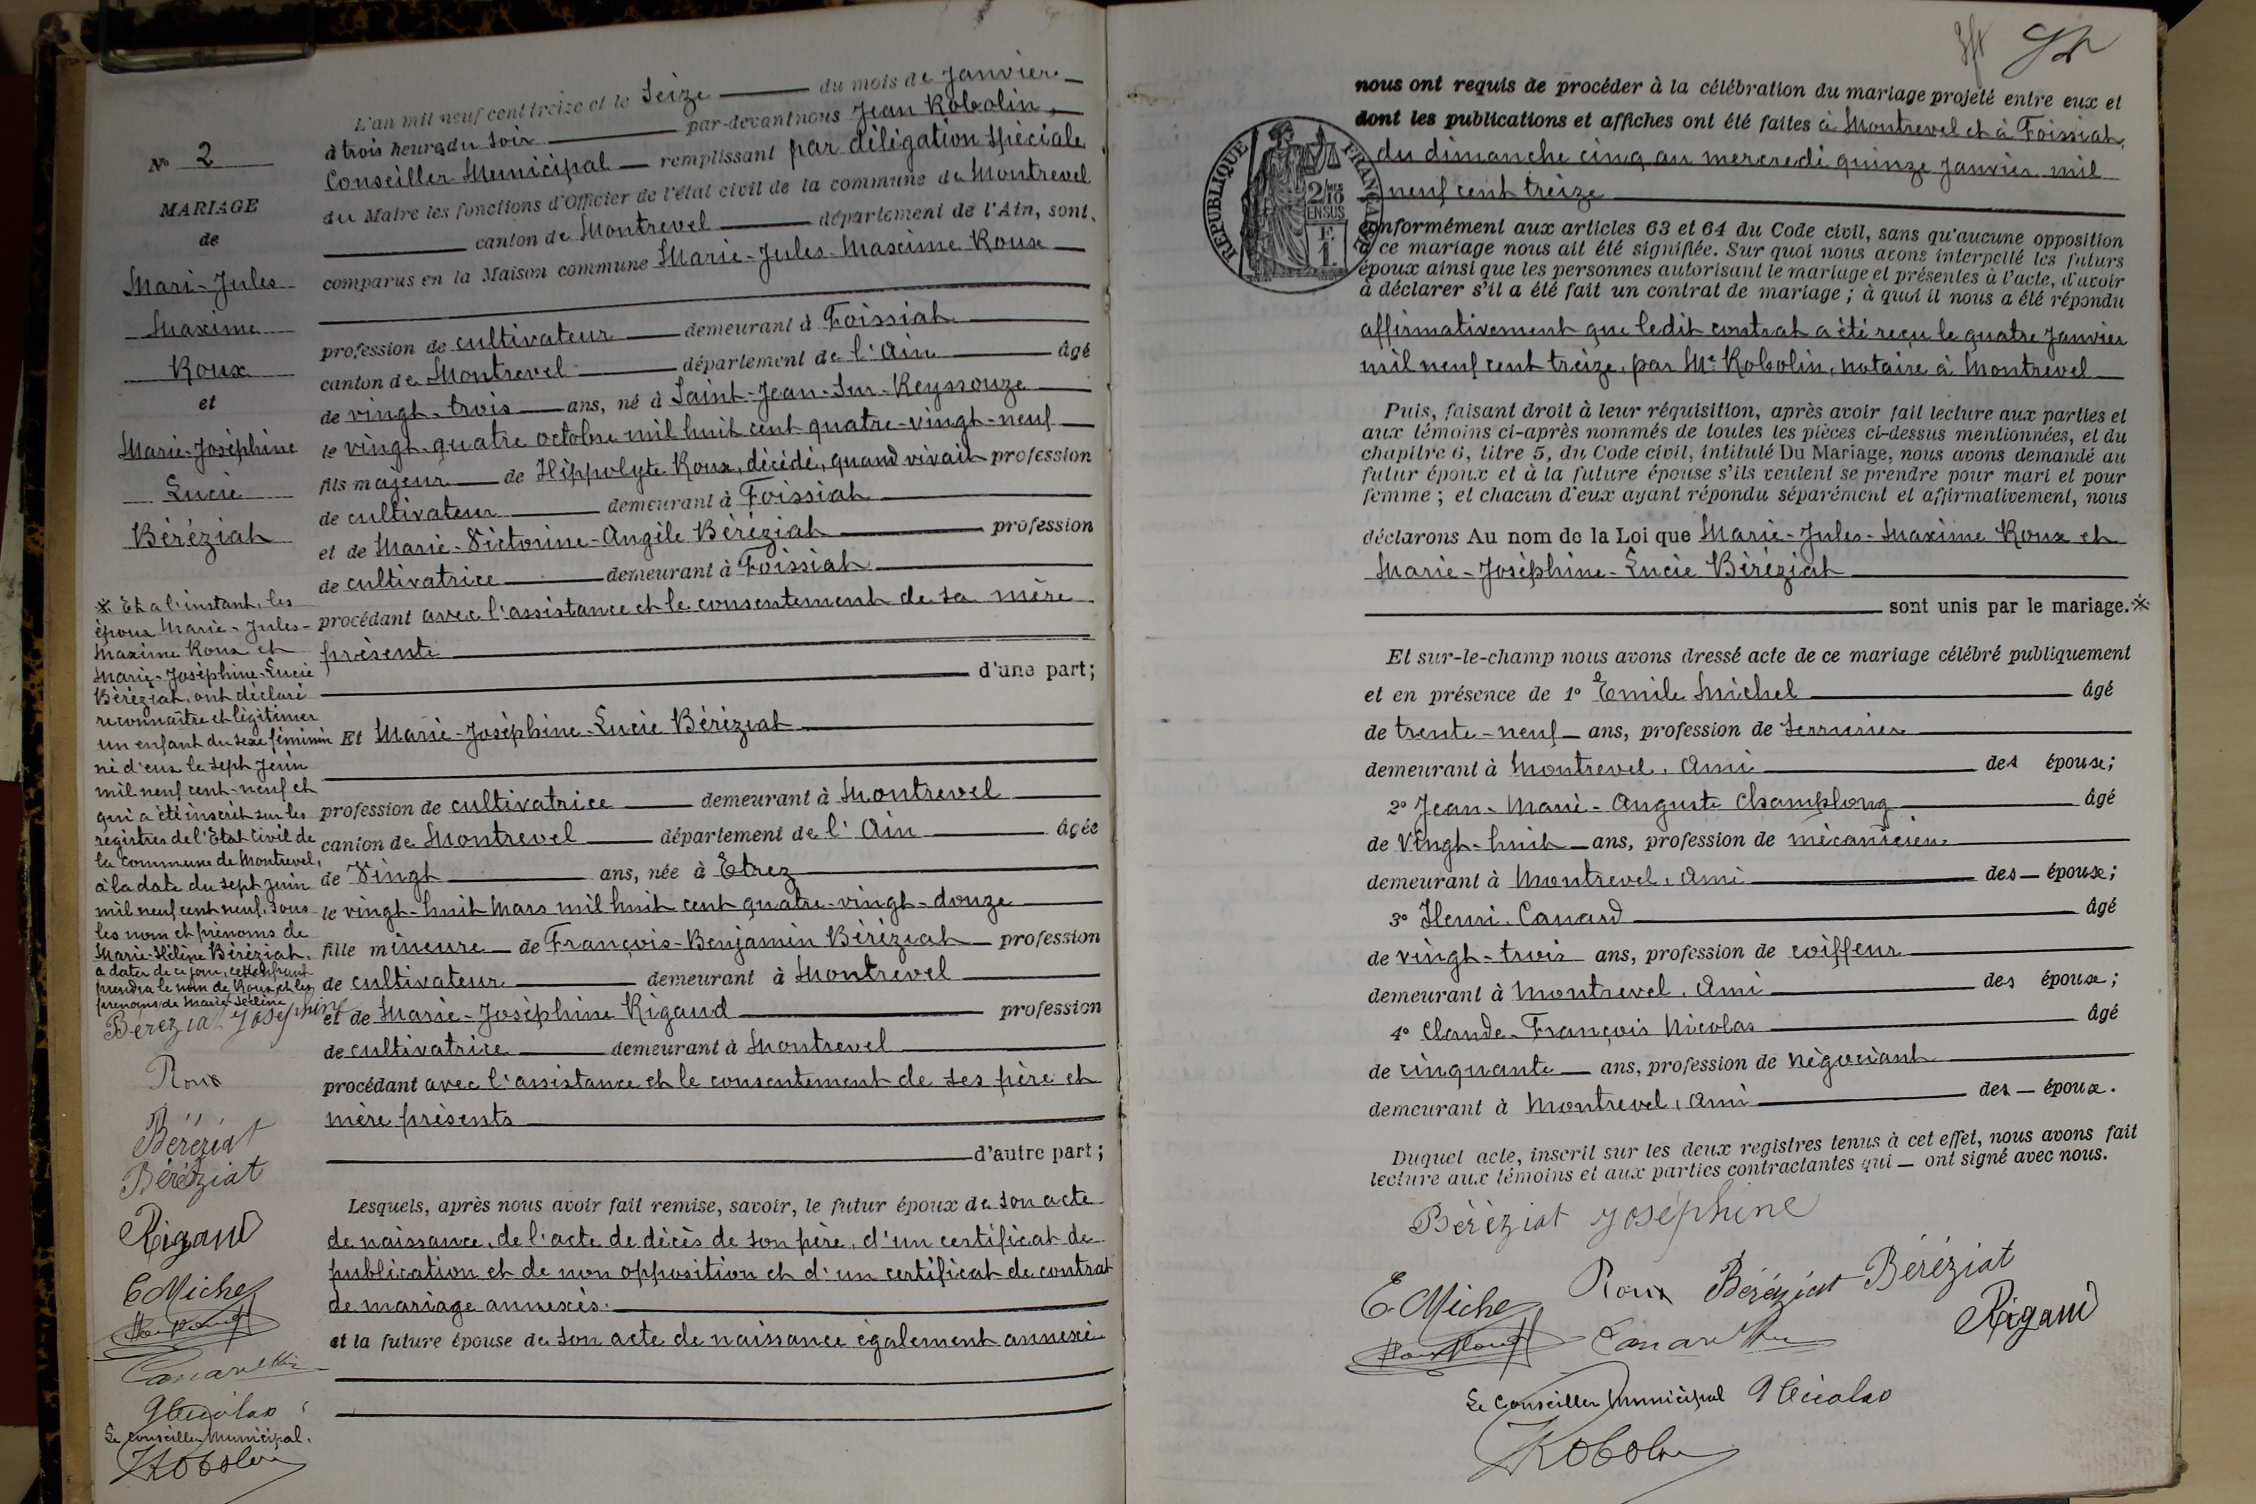 L'an mil neuf cent treize et le Seize du mois de Janvier
à trois heures du soir par-devant nous Jean Robolin,
Conseiller Municipal remplissant par délégation spéciale
du Maire les fonctions d'Officier de l'état civil de la commune de Montrevel
canton de Montrevel département de l'Ain, sont
comparus en la Maison commune Marie-Jules-Maxime Roux
profession de cultivateur demeurant à Foissiat
canton de Montrevel département de l'Ain âgé
de vingt-trois ans, né à Saint-Jean-Sur-Reyssouze
le vingt-quatre octobre mil huit cent quatre-vingt-neuf
fils majeur de Hippolyte Roux, décédé, quand vivait profession
de cultivateur demeurant à Foissiat
et de Marie-Victorine-Angèle Béréziat profession
de cultivatrice demeurant à Foissiat
procédant avec l'assistance et le consentement de sa mère
présente
d'une part;
Et Marie-Joséphine-Lucie Béréziat
profession de cultivatrice demeurant à Montrevel
canton de Montrevel département de l'Ain âgée
de Vingt ans, née à Etrez
le vingt-huit Mars mil huit cent quatre-vingt-douze
fille mineure de François-Benjamin Béréziat profession
de cultivateur demeurant à Montrevel
et de Marie-Joséphine Rigaud profession
de cultivatrice demeurant à Montrevel
procédant avec l'assistance et le consentement de ses père et
mère présents
d'autre part;
Lesquels, après nous avoir fait remise, savoir, le futur époux de son acte
de naissance, de l'acte de décès de son père, d'un certificat de
publication et de non opposition et d'un certificat de contrat
de mariage annexés.
et la future épouse de son acte de naissance également annexé
No 2
MARIAGE
de
Mari-Jules
Maxime
Roux
et
Marie-Joséphine
Lucie
Béréziat
※ Et a l'instant, les
époux Marie-Jules-
Maxime Roux et
Marie-Joséphine-Lucie
Béréziat, ont déclaré
reconnaître et légitimer
un enfant du sexe féminin
né d'eux le sept Juin
mil neuf cent-neuf et
qui a été inscrit sur les
registres de l'Etat Civil de
la Commune de Montrevel,
à la date du sept Juin
mil neuf cent neuf, sous
les nom et prénoms de
Marie-Hélène Béréziat.
a dater de ce jour, cet enfant
prendra le nom de Roux, et les
prénoms de Marie-Hélène
Béréziat Joséphine
Roux
Béréziat
Béréziat
Rigaud
E Michel
Canard
Nicolas
Le Conseiller Municipal.
Robolin
nous ont requis de procéder à la célébration du mariage projeté entre eux et
dont les publications et affiches ont été faites à Montrevel et à Foissiat,
du dimanche cinq au mercredi quinze Janvier mil
neuf cent treize
conformément aux articles 63 et 64 du Code civil, sans qu'aucune opposition
à ce mariage nous ait été signifiée. Sur quoi nous avons interpellé les futurs
époux ainsi que les personnes autorisant le mariage et présentes à l'acte, d'avoir
à déclarer s'il a été fait un contrat de mariage; à quoi il nous a été répondu
affirmativement que ledit contrat a été reçu le quatre Janvier
mil neuf cent treize, par Me Robolin, notaire à Montrevel
Puis, faisant droit à leur réquisition, après avoir fait lecture aux parties et
aux témoins ci-après nommés de toutes les pièces ci-dessus mentionnées, et du
chapitre 6, titre 5, du Code civil, intitulé Du Mariage, nous avons demandé au
futur époux et à la future épouse s'ils veulent se prendre pour mari et pour
femme; et chacun d'eux ayant répondu séparément et affirmativement, nous
déclarons Au nom de la Loi que Marie-Jules-Maxime Roux et
Marie-Joséphine-Lucie Béréziat
sont unis par le mariage.※
Et sur-le-champ nous avons dressé acte de ce mariage célébré publiquement
et en présence de 1o Emile Michel âgé
de trente-neuf ans, profession de serrurier
demeurant à Montrevel, Ami des épouse;
2o Jean-Marie-Auguste Champlong âgé
de Vingt-huit ans, profession de mécanicien
demeurant à Montrevel, Ami des épouse;
3o Henri Canard âgé
de vingt-trois ans, profession de coiffeur
demeurant à Montrevel, Ami des épouse;
4o Claude-François Nicolas âgé
de cinquante ans, profession de négociant
demeurant à Montrevel, Ami des époux.
Duquel acte, inscrit sur les deux registres tenus à cet effet, nous avons fait
lecture aux témoins et aux parties contractantes qui ont signé avec nous.
Béréziat Joséphine
E. Michel Roux Béréziat Béréziat
Canard Rigaud
Le Conseiller Municipal Nicolas
Robolin
RÉPUBLIQUE FRANÇAISE
2/10 EN SUS